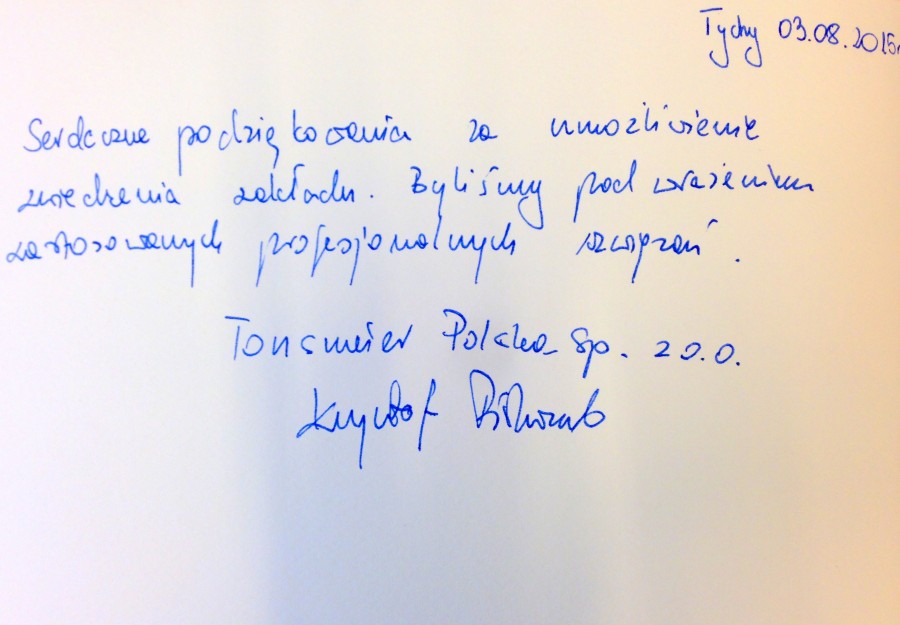 Tychy 03.08.2015r
Serdeczne podziękowania za umożliwienie
zwiedzenia zakładu. Byliśmy pod wrażeniem
zastosowanych profesjonalnych rozwiązań.
Tonsmeier Polska Sp. z o.o.
Krzysztof